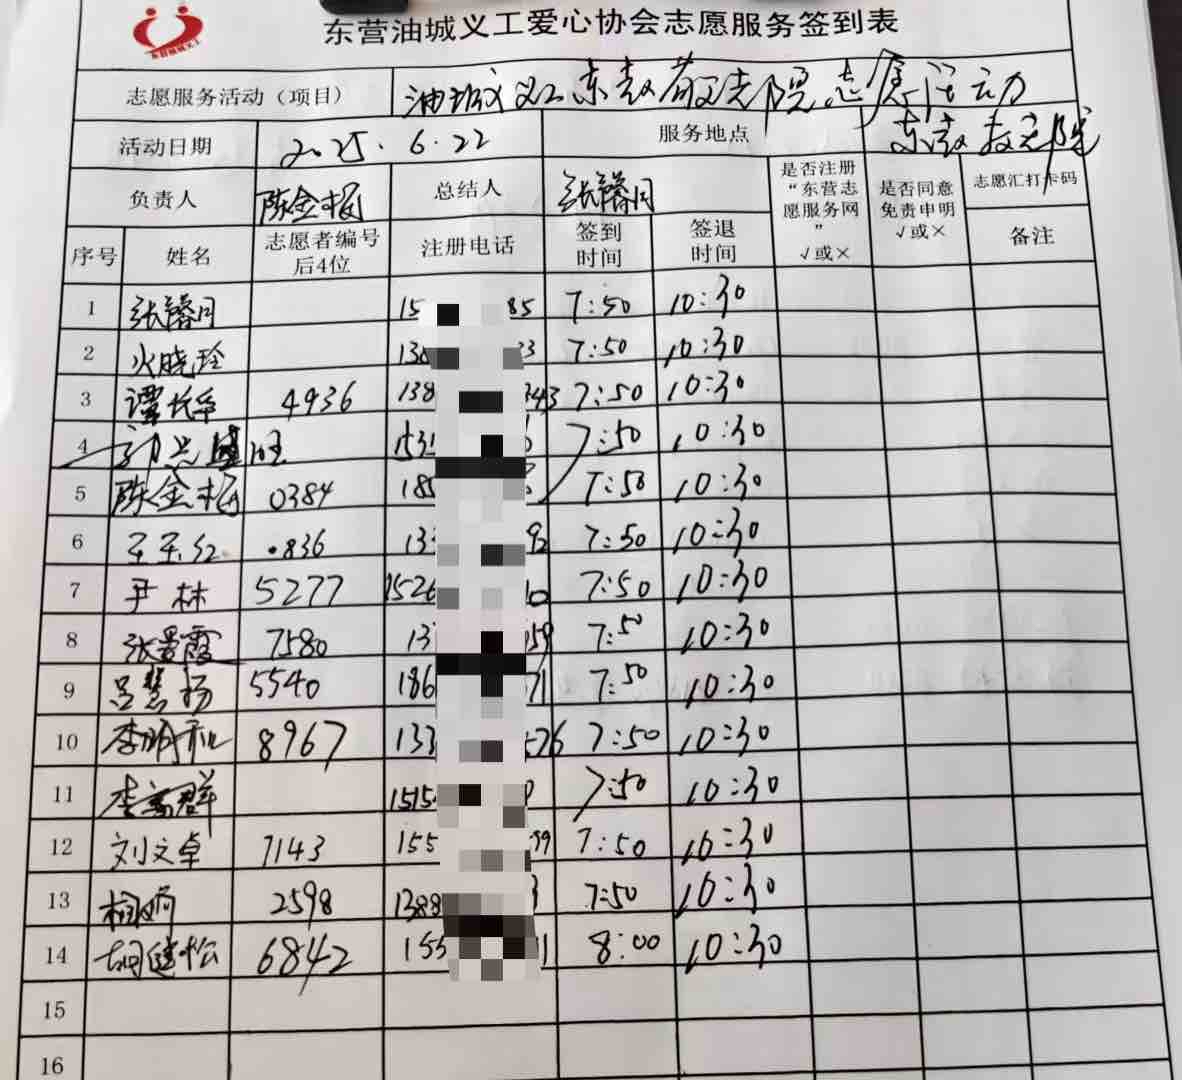 东营油城义工
东营油城义工爱心协会志愿服务签到表
志愿服务活动（项目） 油城义工东赵敬老院志愿活动
活动日期 2025.6.22 服务地点 东赵敬老院
负责人 陈金 总结人 张蓉月 是否注册“东营志愿服务网” √或× 是否同意免责申明 √或× 志愿汇打卡码
序号 姓名 志愿者编号后4位 注册电话 签到时间 签退时间 备注
1 张蓉月 15 85 7:50 10:30
2 火晓玲 138 33 7:50 10:30
3 谭 4936 138 343 7:50 10:30
4 1531 7:50 10:30
5 陈金 0384 185 7:50 10:30
6 王玉红 .836 133 92 7:50 10:30
7 尹林 5277 1526 0 7:50 10:30
8 张景霞 7580 13 59 7:50 10:30
9 吕慧扬 5540 186 71 7:50 10:30
10 李 8967 133 576 7:50 10:30
11 李 群 1515 7:50 10:30
12 刘文卓 7143 155 99 7:50 10:30
13 2598 1388 3 7:50 10:30
14 胡建松 6842 155 1 8:00 10:30
15
16